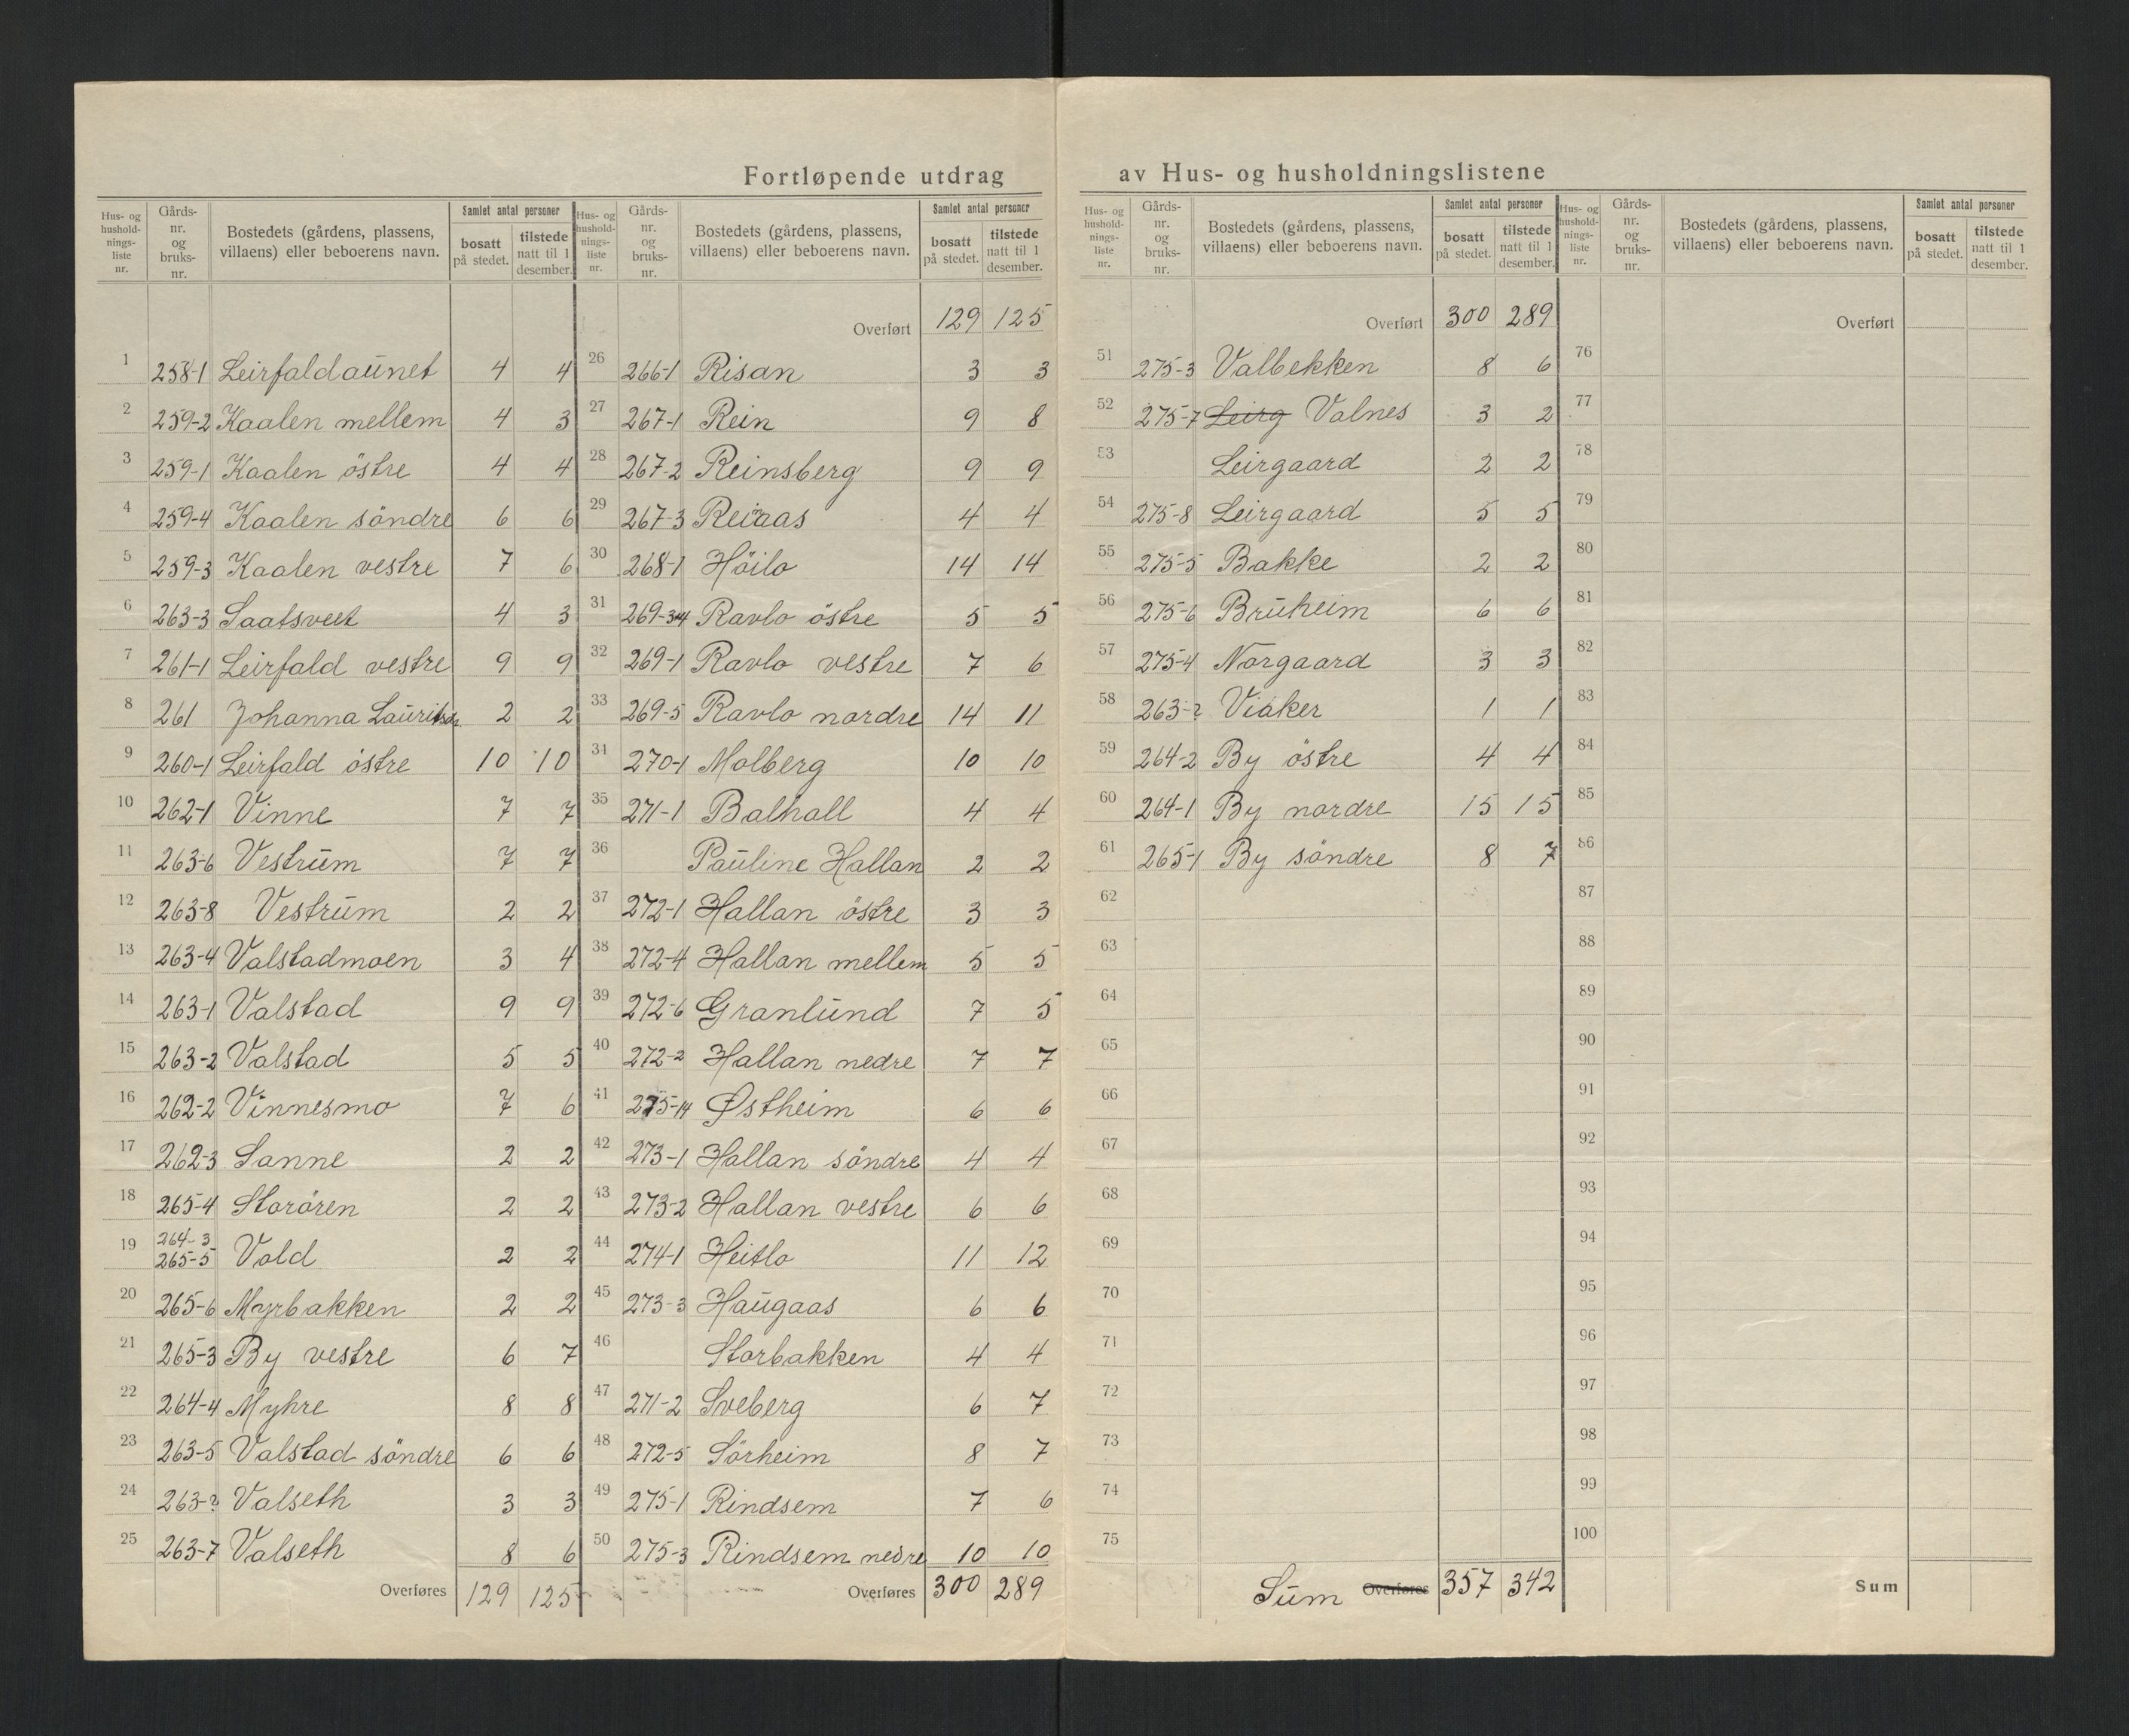 Fortløpende utdrag av Hus- og husholdningslistene
Hus- og hushold-nings-liste nr. Gårds-nr. og bruks-nr. Bostedets (gårdens, plassens, villaens) eller beboerens navn. Samlet antal personer bosatt på stedet. tilstede natt til 1 desember.
1 258-1 Leirfaldaunet 4 4
2 259-2 Kaalen mellem 4 3
3 259-1 Kaalen östre 4 4
4 259-4 Kaalen söndre 6 6
5 259-3 Kaalen vestre 7 6
6 263-3 Saatsveet 4 3
7 261-1 Leirfald vestre 9 9
8 261 Johanna Lauritsdr. 2 2
9 260-1 Leirfald östre 10 10
10 262-1 Vinne 7 7
11 263-6 Vestrum 7 7
12 263-8 Vestrum 2 2
13 263-4 Valstadmoen 3 4
14 263-1 Valstad 9 9
15 263-2 Valstad 5 5
16 262-2 Vinnesmo 7 6
17 262-3 Sanne 2 2
18 265-4 Storören 2 2
19 264-3 265-5 Vold 2 2
20 265-6 Myrbakken 2 2
21 265-3 By vestre 6 7
22 264-4 Myhre 8 8
23 263-5 Valstad söndre 6 6
24 263-? Valseth 3 3
25 263-7 Valseth 8 6
Overføres 129 125
Hus- og hushold-nings-liste nr. Gårds-nr. og bruks-nr. Bostedets (gårdens, plassens, villaens) eller beboerens navn. Samlet antal personer bosatt på stedet. tilstede natt til 1 desember.
Overført 129 125
26 266-1 Risan 3 3
27 267-1 Rein 9 8
28 267-2 Reinsberg 9 9
29 267-3 Reiaas 4 4
30 268-1 Höilo 14 14
31 269-3+4 Ravlo östre 5 5
32 269-1 Ravlo vestre 7 6
33 269-5 Ravlo nordre 14 11
34 270-1 Molberg 10 10
35 271-1 Balhall 4 4
36 Pauline Hallan 2 2
37 272-1 Hallan östre 3 3
38 272-4 Hallan mellem 5 5
39 272-6 Granlund 7 5
40 272-2 Hallan nedre 7 7
41 275-14 Østheim 6 6
42 273-1 Hallan söndre 4 4
43 273-2 Hallan vestre 6 6
44 274-1 Heitlo 11 12
45 273-3 Haugaas 6 6
46 Storbakken 4 4
47 271-2 Sveberg 6 7
48 272-5 Sörheim 8 7
49 275-1 Rindsem 7 6
50 275-3 Rindsem nedre 10 10
Overføres 300 289
Hus- og hushold-nings-liste nr. Gårds-nr. og bruks-nr. Bostedets (gårdens, plassens, villaens) eller beboerens navn. Samlet antal personer bosatt på stedet. tilstede natt til 1 desember.
Overført 300 289
51 275-3 Valbekken 8 6
52 275-7 Leirg Valnes 3 2
53 Leirgaard 2 2
54 275-8 Leirgaard 5 5
55 275-5 Bakke 2 2
56 275-6 Bruheim 6 6
57 275-4 Norgaard 3 3
58 263-? Viaker 1 1
59 264-2 By östre 4 4
60 264-1 By nordre 15 15
61 265-1 By söndre 8 7
62
63
64
65
66
67
68
69
70
71
72
73
74
75
Sum Overføres 357 342
Hus- og hushold-nings-liste nr. Gårds-nr. og bruks-nr. Bostedets (gårdens, plassens, villaens) eller beboerens navn. Samlet antal personer bosatt på stedet. tilstede natt til 1 desember.
Overført
76
77
78
79
80
81
82
83
84
85
86
87
88
89
90
91
92
93
94
95
96
97
98
99
100
Sum